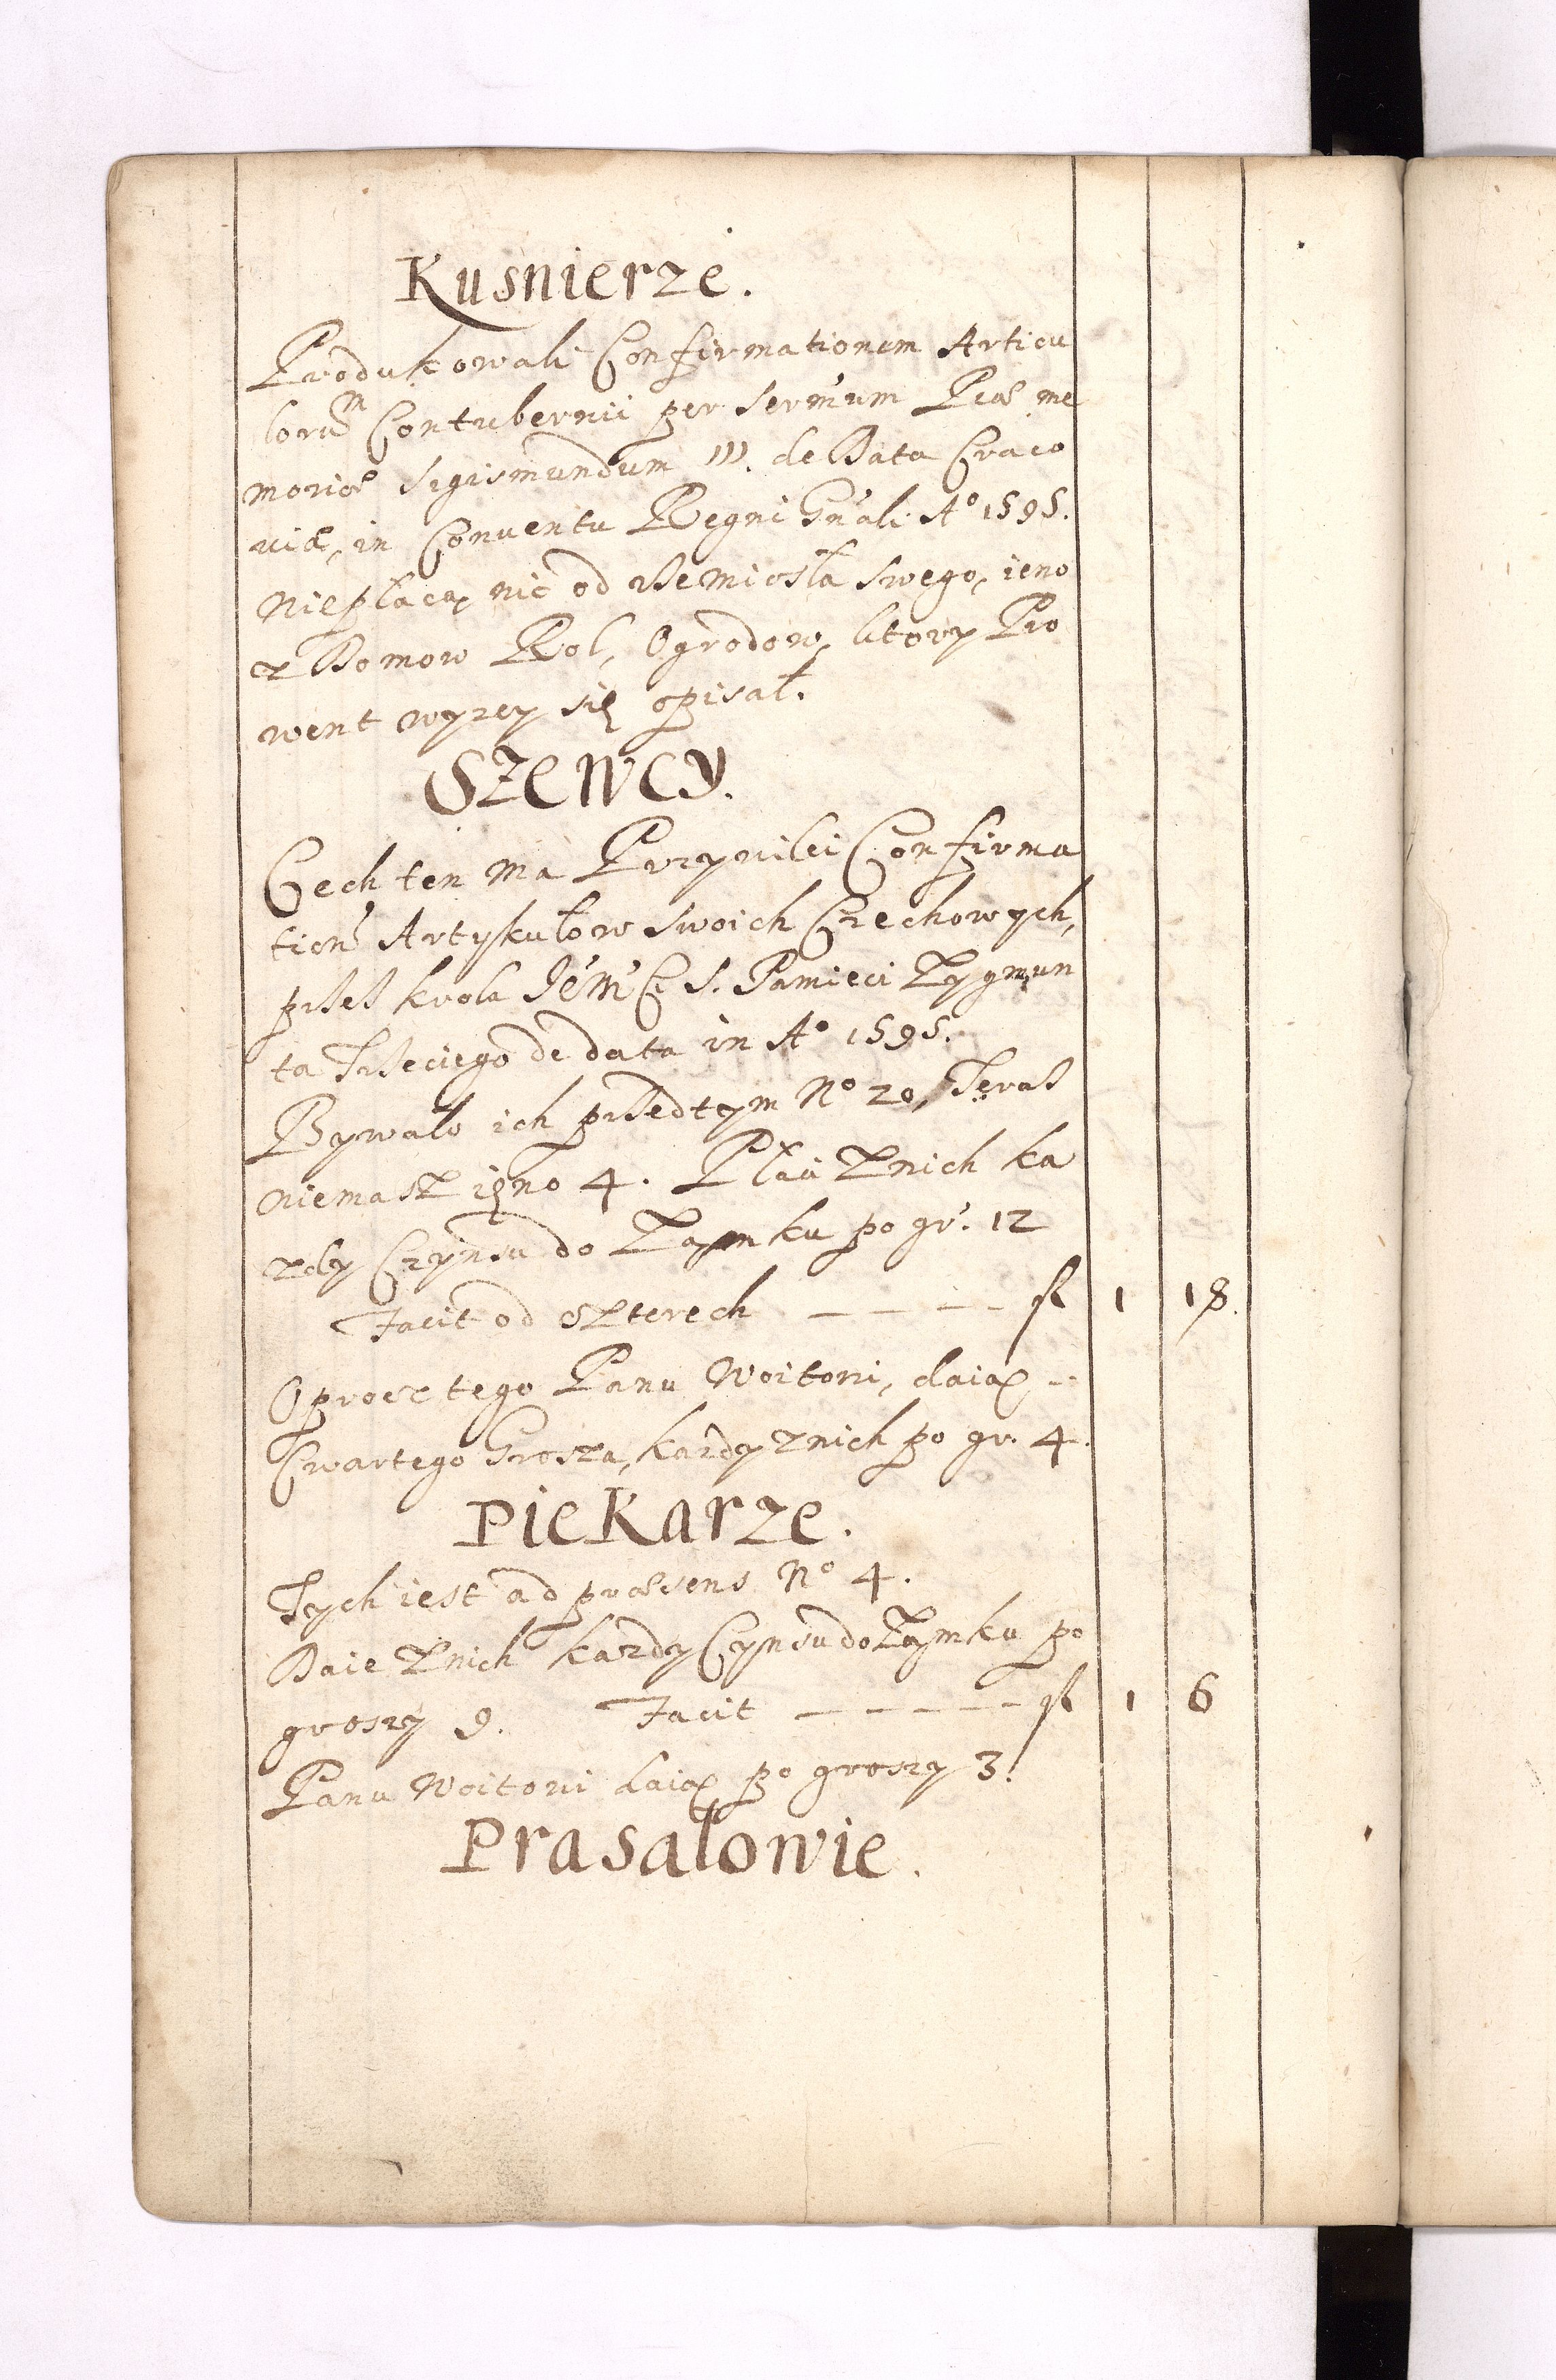 Kusnierze.
Produkowali Confirmationem Articu
lorum Contubernii per Serm̃um Piæ me
moriæ Sigismundum III. de Data Craco
viæ, in Conventu Regni Gñali Aº 1595.
Niepłacą nic od Rzemiosła swego, ieno
z Domow Rol, Ogrodow, ktory Pro
went wyzey się opisał.
Szewcy.
Cech ten ma Przywilei Confirma
tioñ Artykułow swoich Czechowych,
przez krola Je͠m͠Ci S. Pamieci Zygmun
ta Trzeciego de data in Aº 1595.
Bywało ich przedtym Nº 20, Teraz
niemasz ieno 4. Płaci Znich ka
zdy Czynsu do Zamku po gr. 12
Facit od czterech _ _ _ _ fl 1 18.
Oprocz tego Panu Woitowi, daią --
Czwartego Grosza, kazdy znich po gr. 4.
Piekarze.
Tych iest ad præsens Nº 4.
Daie Znich kazdy Cynsu do Zamku po
groszy 9. Facit _ _ _ _ _ fl 1 6
Panu Woitowi daią po groszy 3.
Prasałowie.